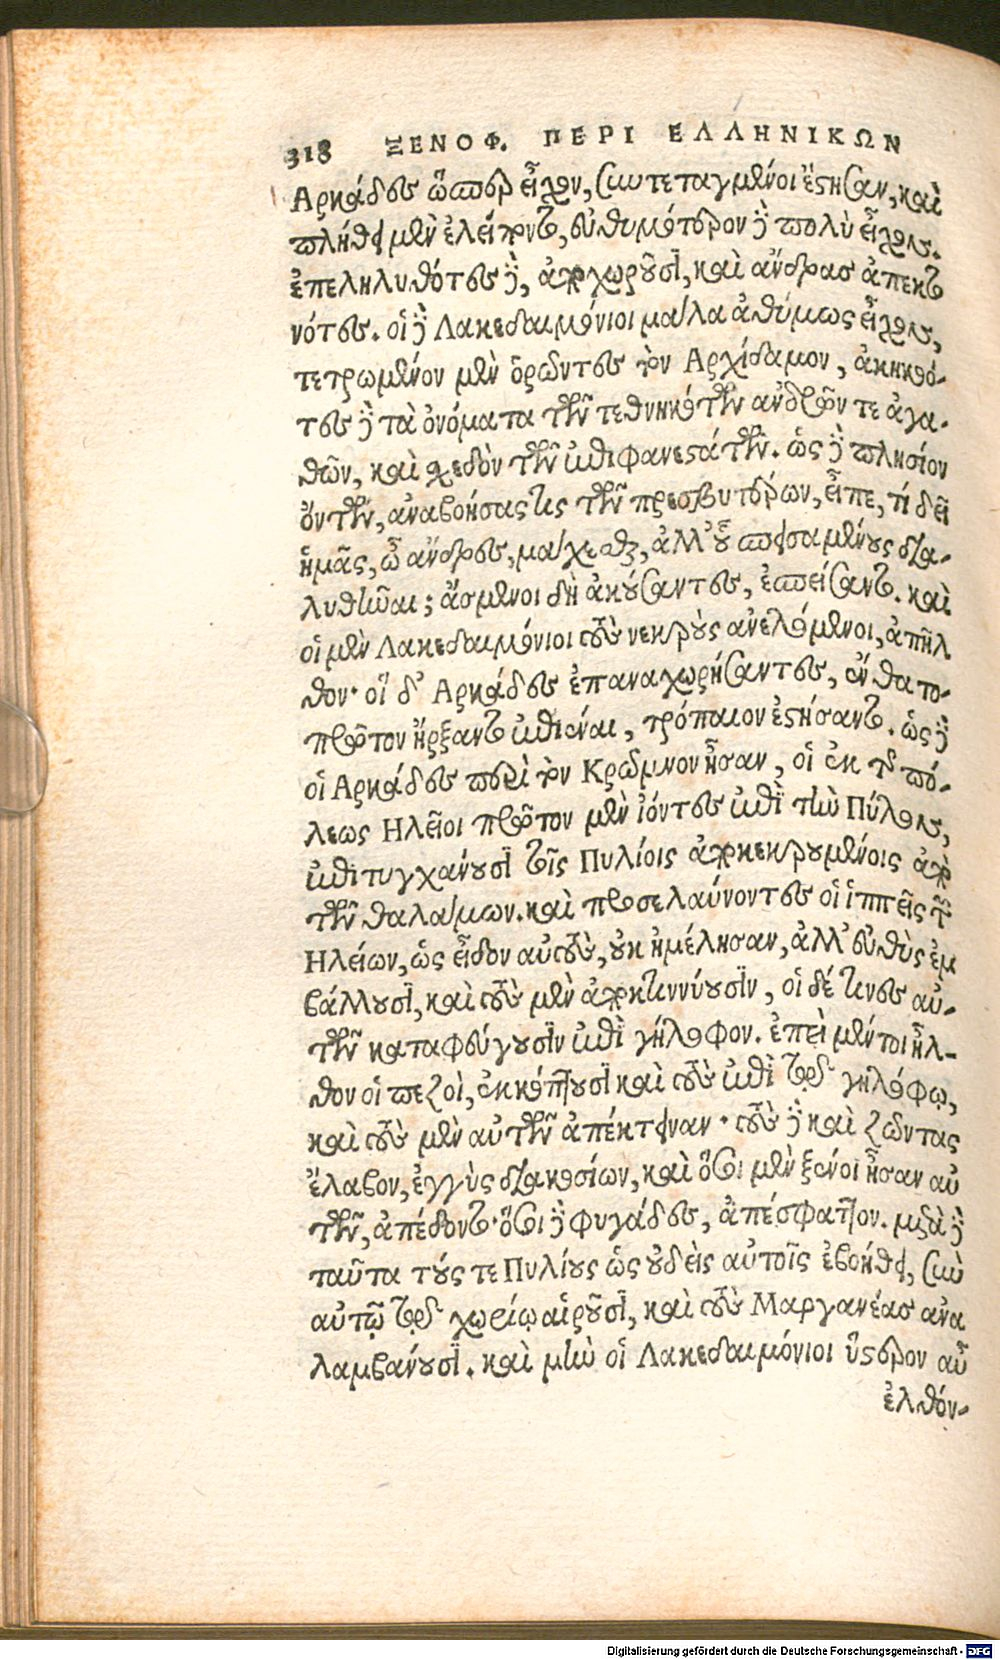 318 ΞΕΝΟΦ. ΠΕΡΙ ΕΛΛΗΝΙΚΩΝ
Αρκάδες ὥσπερ εἶχον, συντεταγμένοι ἔστησαν, καὶ
πλήθει μὲν ἐλείποντο, εὐθυμότερον δὲ πολὺ εἶχον.
ἐπεληλυθότες δὲ, ἀποχωροῦσι, καὶ ἄνδρας ἀπεκτο
νότες. οἱ δὲ Λακεδαιμόνιοι μάλα ἀθύμως εἶχον,
τετρωμένον μὲν ὁρῶντες τὸν Αρχίδαμον, ἀκηκοό-
τες δὲ τὰ ὀνόματα τῶν τεθνηκότων ἀνδρῶν τε ἀγα-
θῶν, καὶ σχεδὸν τῶν ἐπιφανεστάτων. ὡς δὲ πλησίον
ὄντων, ἀναβοήσας τις τῶν πρεσβυτέρων, εἶπε, τί δεῖ
ἡμᾶς, ὦ ἄνδρες, μάχεσθαι, ἀλλ' οὐ σπεισαμένους δια-
λυθῆναι; ἄσμενοι δὴ ἀκούσαντες, ἐσπείσαντο. καὶ
οἱ μὲν Λακεδαιμόνιοι τοὺς νεκροὺς ἀνελόμενοι, ἀπῆλ
θον· οἱ δ' Αρκάδες ἐπαναχωρήσαντες, ἔνθα το-
πρῶτον ἤρξαντο ἐπιέναι, τρόπαιον ἐστήσαντο. ὡς δὲ
οἱ Αρκάδες περὶ τὸν Κρῶμνον ἦσαν, οἱ ἐκ τῆς πό-
λεως Ηλεῖοι πρῶτον μὲν ἰόντες ἐπὶ τὴν Πύλον,
ἐπιτυγχάνουσι τοῖς Πυλίοις ἀποκεκρουμένοις ἀπὸ
τῶν θαλάμων. καὶ προσελαύνοντες οἱ ἱππεῖς τῶν
Ηλείων, ὡς εἶδον αὐτοὺς, οὐκ ἠμέλησαν, ἀλλ' εὐθὺς ἐμ
βάλλουσι, καὶ τοὺς μὲν ἀποκτιννύουσιν, οἱ δέ τινες αὐ-
τῶν καταφεύγουσιν ἐπὶ γήλοφον. ἐπεὶ μέντοι ἦλ-
θον οἱ πεζοὶ, ἐκκόπτουσι καὶ τοὺς ἐπὶ τοῦ γηλόφῳ,
καὶ τοὺς μὲν αὐτῶν ἀπέκτειναν· τοὺς δὲ καὶ ζῶντας
ἔλαβον, ἐγγὺς διακοσίων, καὶ ὅσοι μὲν ξένοι ἦσαν αὐ
τῶν, ἀπέδοντο· ὅσοι δὲ φυγάδες, ἀπέσφαττον. μετὰ δὲ
ταῦτα τούς τε Πυλίους ὡς οὐδεὶς αὐτοῖς ἐβοήθει, σὺν
αὐτῷ τῷ χωρίῳ αἱροῦσι, καὶ τοὺς Μαργανέας ἀνα
λαμβάνουσι. καὶ μὴν οἱ Λακεδαιμόνιοι ὕστερον αὖ
ἐλθόν-
Digitalisierung gefördert durch die Deutsche Forschungsgemeinschaft - DFG